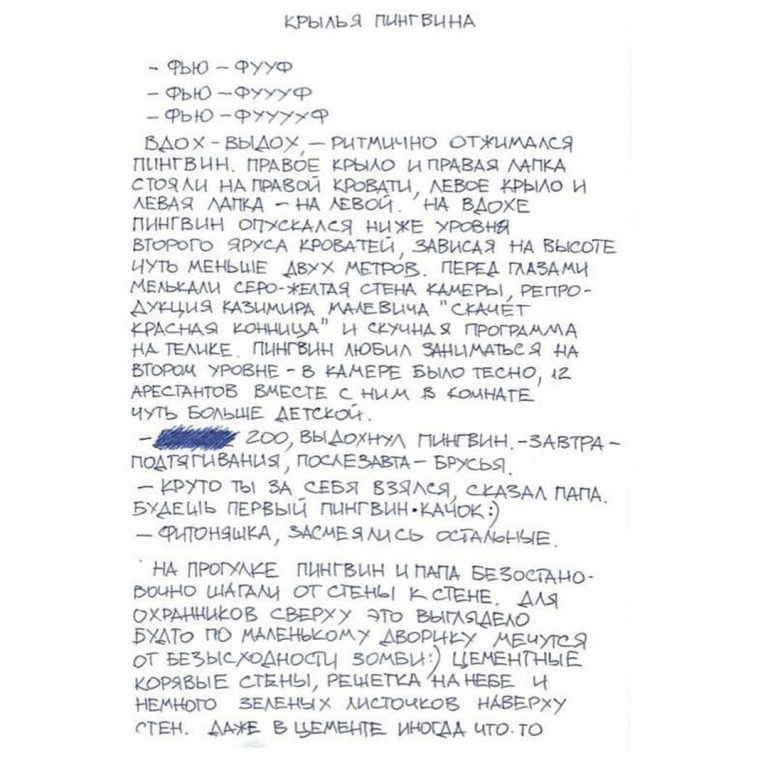 КРЫЛЬЯ ПИНГВИНА
- ФЬЮ - ФУУФ
- ФЬЮ - ФУУУФ
- ФЬЮ - ФУУУУФ
ВДОХ - ВЫДОХ, - РИТМИЧНО ОТЖИМАЛСЯ
ПИНГВИН. ПРАВОЕ КРЫЛО И ПРАВАЯ ЛАПКА
СТОЯЛИ НА ПРАВОЙ КРОВАТИ, ЛЕВОЕ КРЫЛО И
ЛЕВАЯ ЛАПКА - НА ЛЕВОЙ. НА ВДОХЕ
ПИНГВИН ОПУСКАЛСЯ НИЖЕ УРОВНЯ
ВТОРОГО ЯРУСА КРОВАТЕЙ, ЗАВИСАЯ НА ВЫСОТЕ
ЧУТЬ МЕНЬШЕ ДВУХ МЕТРОВ. ПЕРЕД ГЛАЗАМИ
МЕЛЬКАЛИ СЕРО-ЖЕЛТАЯ СТЕНА КАМЕРЫ, РЕПРО-
ДУКЦИЯ КАЗИМИРА МАЛЕВИЧА "СКАЧЕТ
КРАСНАЯ КОННИЦА" И СКУЧНАЯ ПРОГРАММА
НА ТЕЛИКЕ. ПИНГВИН ЛЮБИЛ ЗАНИМАТЬСЯ НА
ВТОРОМ УРОВНЕ - В КАМЕРЕ БЫЛО ТЕСНО, 12
АРЕСТАНТОВ ВМЕСТЕ С НИМ В КОМНАТЕ
ЧУТЬ БОЛЬШЕ ДЕТСКОЙ.
- 200, ВЫДОХНУЛ ПИНГВИН. - ЗАВТРА -
ПОДТЯГИВАНИЯ, ПОСЛЕЗАВТА - БРУСЬЯ.
- КРУТО ТЫ ЗА СЕБЯ ВЗЯЛСЯ, СКАЗАЛ ПАПА.
БУДЕШЬ ПЕРВЫЙ ПИНГВИН-КАЧОК :)
- ФИТОНЯШКА, ЗАСМЕЯЛИСЬ ОСТАЛЬНЫЕ.
НА ПРОГУЛКЕ ПИНГВИН И ПАПА БЕЗОСТАНО-
ВОЧНО ШАГАЛИ ОТ СТЕНЫ К СТЕНЕ. ДЛЯ
ОХРАННИКОВ СВЕРХУ ЭТО ВЫГЛЯДЕЛО
БУДТО ПО МАЛЕНЬКОМУ ДВОРИКУ МЕЧУТСЯ
ОТ БЕЗЫСХОДНОСТИ ЗОМБИ :) ЦЕМЕНТНЫЕ
КОРЯВЫЕ СТЕНЫ, РЕШЕТКА НА НЕБЕ И
НЕМНОГО ЗЕЛЕНЫХ ЛИСТОЧКОВ НАВЕРХУ
СТЕН. ДАЖЕ В ЦЕМЕНТЕ ИНОГДА ЧТО-ТО